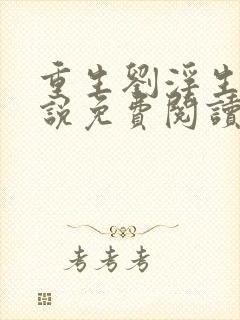 重生劉淫生
說免費閱讀
考考考